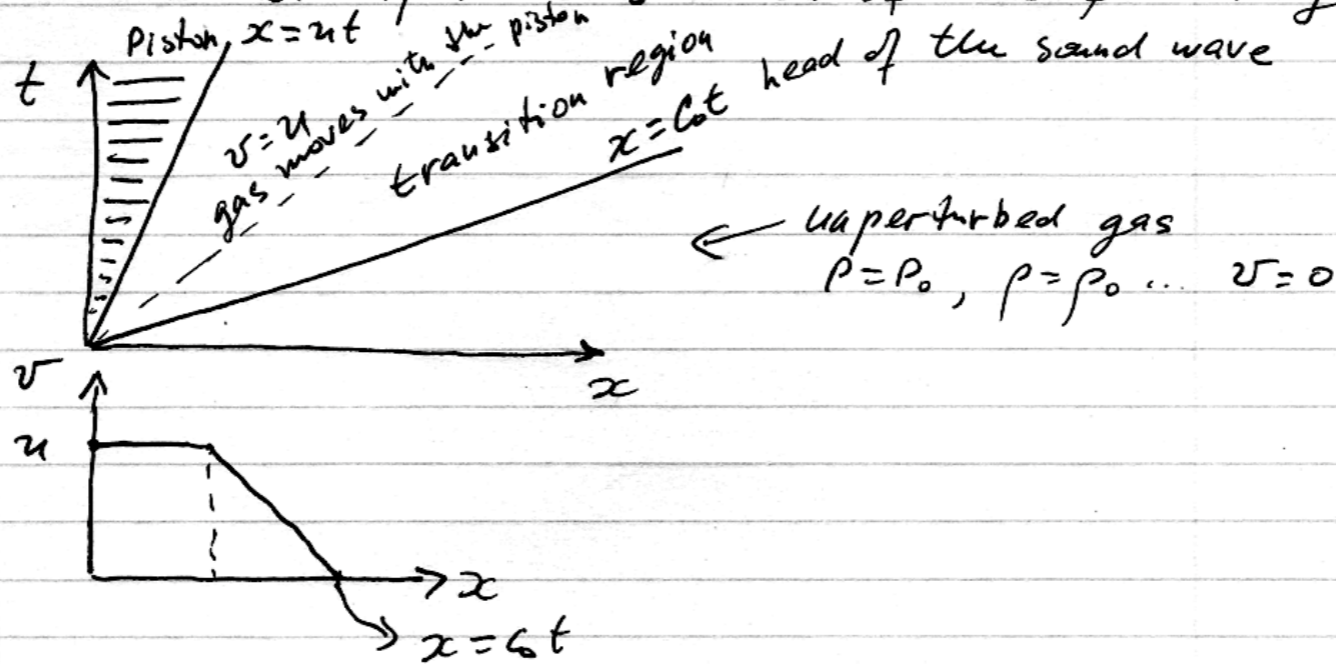 Piston x = ut
t
v = u
gas moves with the piston
transition region
x = C₀t head of the sound wave
← unperturbed gas
P = P₀, ρ = ρ₀ ... v = 0
x
v
u
x
x = C₀t